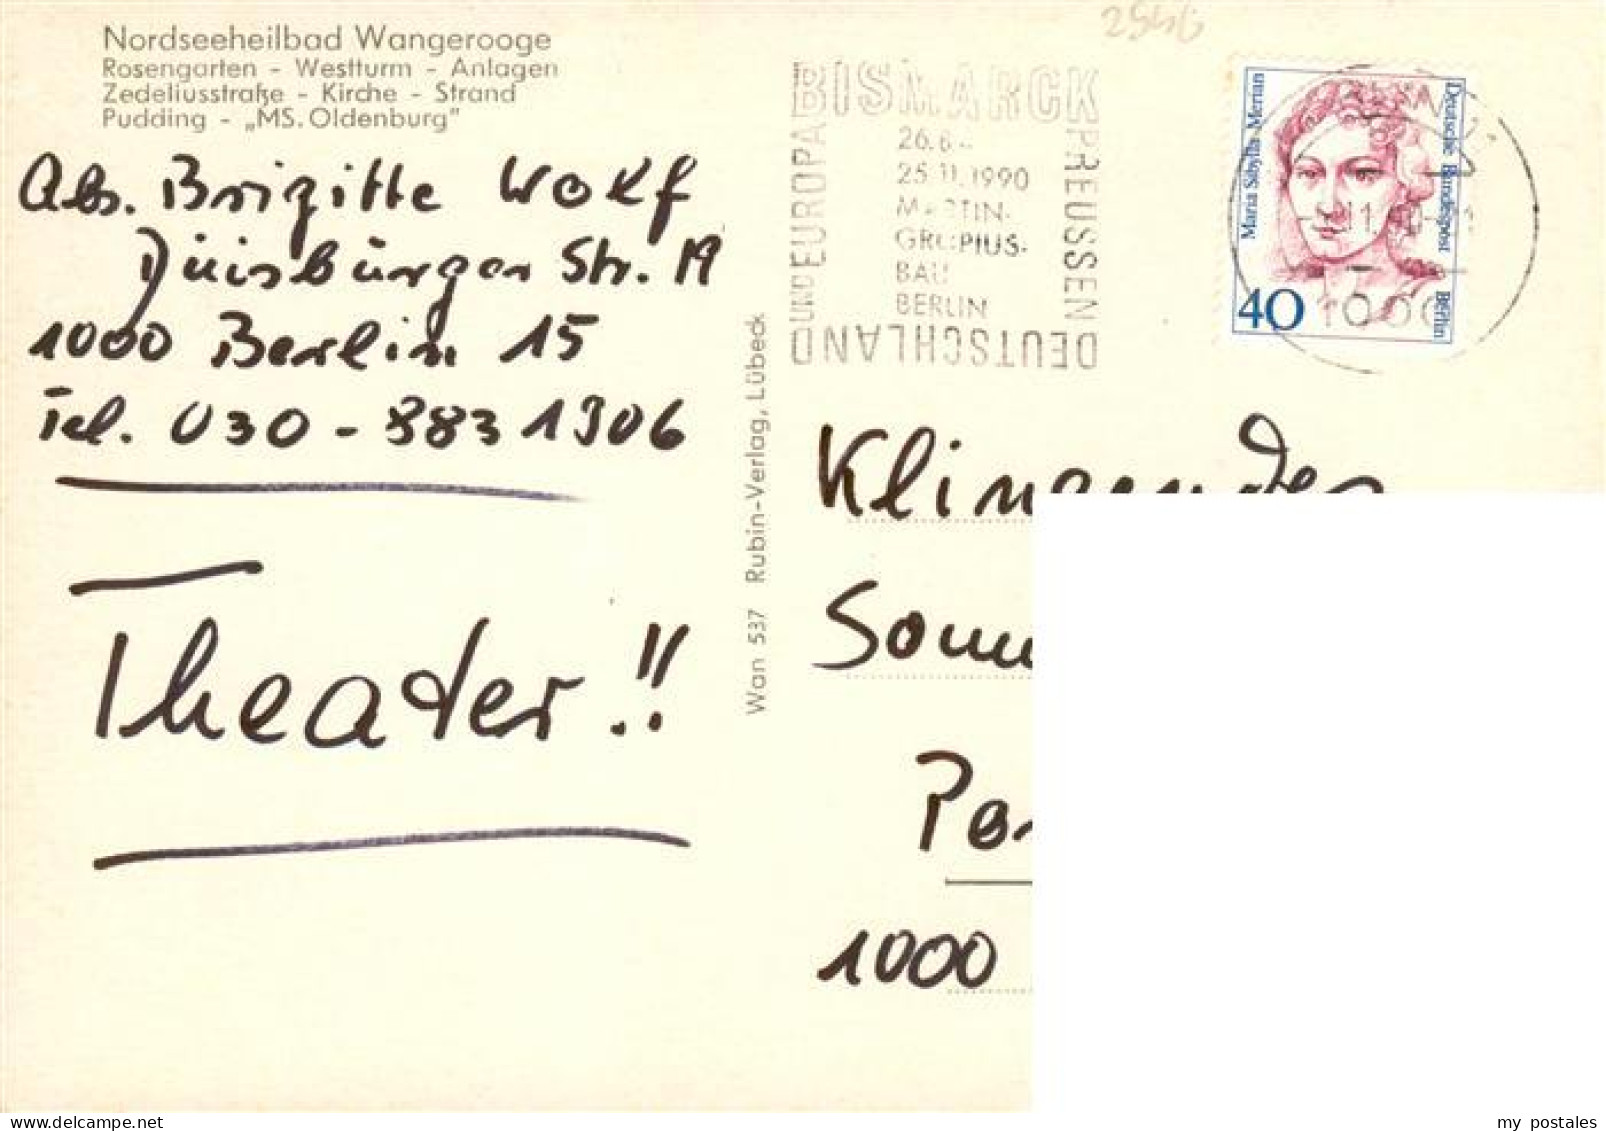 Nordseeheilbad Wangerooge
Rosengarten - Westturm - Anlagen
Zedeliusstraße - Kirche - Strand
Pudding - „MS. Oldenburg"
Abs. Brigitte Wolf
Duisburger Str. 19
1000 Berlin 15
Tel. 030 - 883 1306
Theater!!
Wan 537 Rubin-Verlag, Lübeck
2546
BISMARCK
PREUSSEN
DEUTSCHLAND
UND EUROPA
26.8 -
25.11.1990
MARTIN-
GROPIUS-
BAU
BERLIN
Maria Sibylla Merian
Deutsche Bundespost Berlin
40
1000
Klingendes
1000
my postales